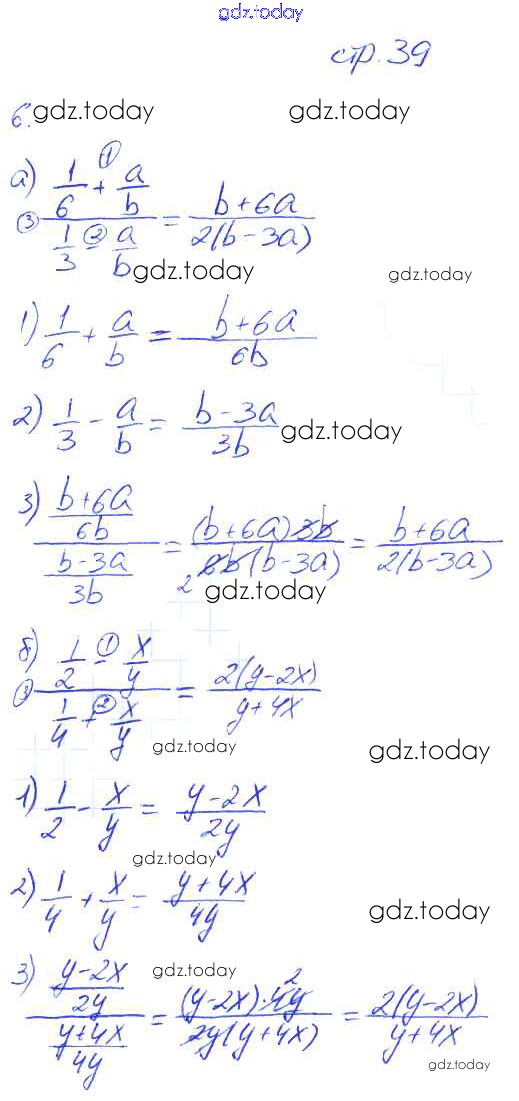 gdz.today
стр. 39
6. gdz.today gdz.today
а) ③ (1/6 +① a/b) / (1/3 -② a/b) = (b+6a) / (2(b-3a))
gdz.today gdz.today
1) 1/6 + a/b = (b+6a) / 6b
2) 1/3 - a/b = (b-3a) / 3b gdz.today
3) ((b+6a) / 6b) / ((b-3a) / 3b) = ((b+6a) 3b) / (2 6b(b-3a)) = (b+6a) / (2(b-3a))
gdz.today
б) ③ (1/2 -① x/y) / (1/4 +② x/y) = 2(y-2x) / (y+4x)
gdz.today gdz.today
1) 1/2 - x/y = (y-2x) / 2y
gdz.today
2) 1/4 + x/y = (y+4x) / 4y gdz.today
3) ((y-2x) / 2y) / ((y+4x) / 4y) = ((y-2x)·4y 2) / (2y(y+4x)) = 2(y-2x) / (y+4x)
gdz.today
gdz.today